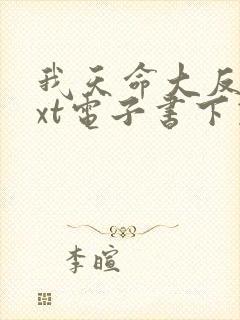 我天命大反
xt電子書下
李暄